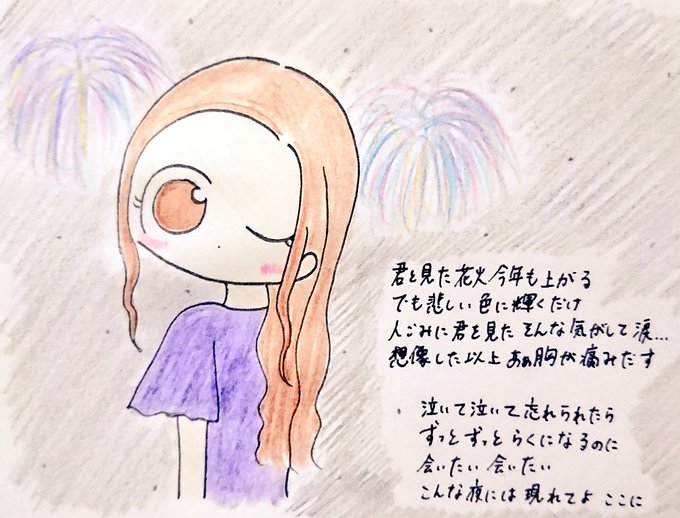 君と見た花火今年も上がる
でも悲しい色に輝くだけ
人ごみに君を見た そんな気がして 涙…
想像した以上 あぁ胸が痛みだす
泣いて泣いて忘れられたら
ずっとずっと らくになるのに
会いたい 会いたい
こんな夜には 現れてよ ここに